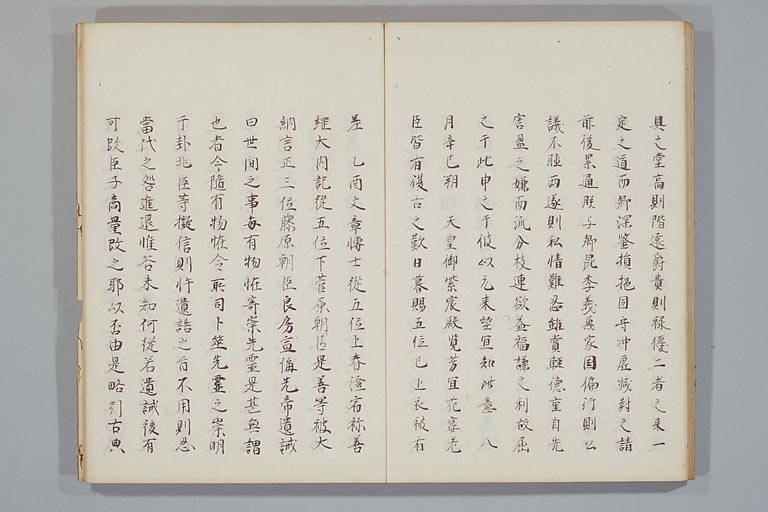 具之堂高則階遠爵貴則禄優二者之来一
定之道而卿深鑒損挹固守冲虚減封之請
前後累通朕与卿昆季義兼家国偏行則公
議不融両遂則私情難忍雖賞軽徳重自先
害盈之嫌而派分枝連欲益福謙之利故屈
之于此申之于彼以元来望宜知此意 八
月辛巳朔 天皇御紫宸殿覧芳宜花宴老
臣皆有復古之歎日暮賜五位已上衣被有
差 乙酉文章博士従五位上春澄宿祢善
縄大内記従五位下菅原朝臣是善等被大
納言正三位藤原朝臣良房宣偁先帝遺誡
曰世間之事毎有物恠寄祟先霊是甚無謂
也者今随有物恠令所司卜筮先霊之祟明
于卦兆臣等擬信則忤遺誥之旨不用則忍
當代之咎進退惟谷未知何従若遺誡後有
可改臣子商量改之耶以否由是略引古典